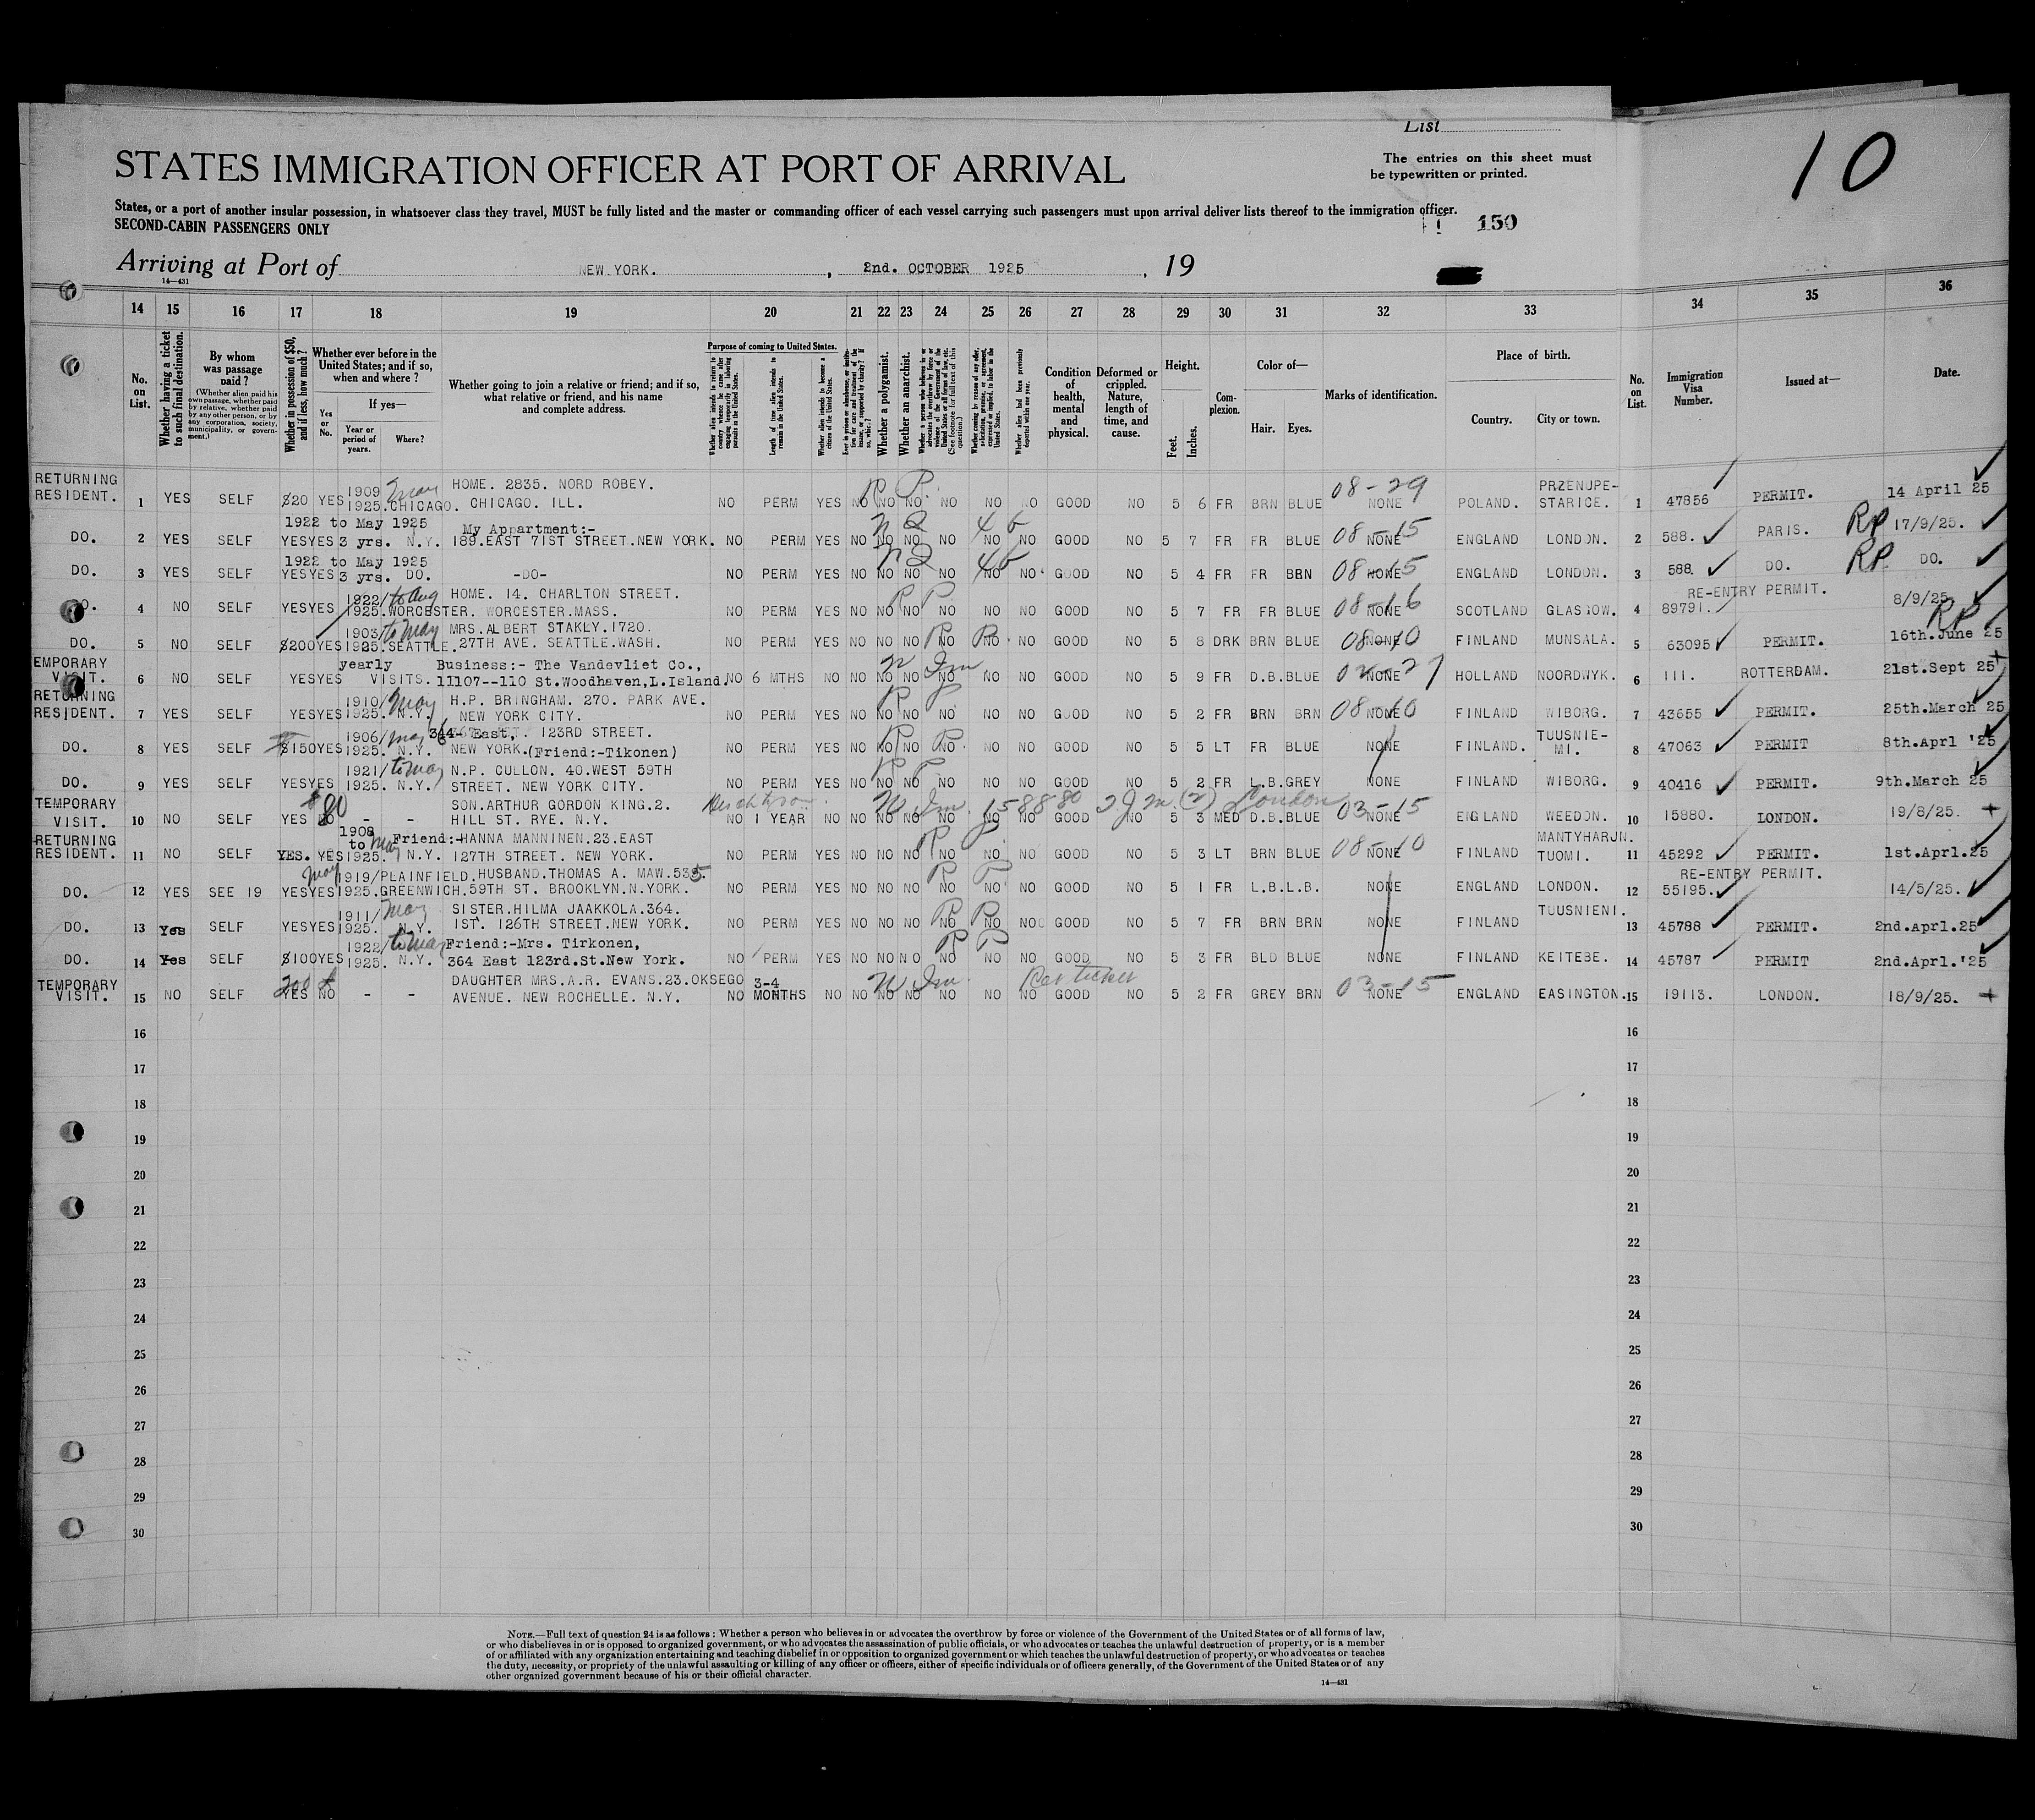 List
10
STATES IMMIGRATION OFFICER AT PORT OF ARRIVAL
The entries on this sheet must
be typewritten or printed.
States, or a port of another insular possession, in whatsoever class they travel, MUST be fully listed and the master or commanding officer of each vessel carrying such passengers must upon arrival deliver lists thereof to the immigration officer.
SECOND-CABIN PASSENGERS ONLY
150
Arriving at Port of NEW YORK. , 2nd. OCTOBER 1925 , 19
14—431
14 15 16 17 18 19 20 21 22 23 24 25 26 27 28 29 30 31 32 33 34 35 36
No. on List.
Whether having a ticket to such final destination.
By whom was passage paid?
(Whether alien paid his own passage, whether paid by relative, whether paid by any other person, or by any corporation, society, municipality, or government.)
Whether in possession of $50, and if less, how much?
Whether ever before in the United States; and if so, when and where?
If yes—
Yes or No.
Year or period of years.
Where?
Whether going to join a relative or friend; and if so, what relative or friend, and his name and complete address.
Purpose of coming to United States.
Whether alien intends to return to country whence he came after engaging temporarily in laboring pursuits in the United States.
Length of time alien intends to remain in the United States.
Whether alien intends to become a citizen of the United States.
Whether a polygamist.
Whether an anarchist.
Condition of health, mental and physical.
Deformed or crippled. Nature, length of time, and cause.
Height.
Feet. Inches.
Complexion.
Color of—
Hair. Eyes.
Marks of identification.
Place of birth.
Country. City or town.
No. on List.
Immigration Visa Number.
Issued at—
Date.
RETURNING RESIDENT. 1 YES SELF $20 YES 1909 May 1925. CHICAGO. HOME. 2835. NORD ROBEY. CHICAGO. ILL. NO PERM YES NO NO NO NO NO NO GOOD NO 5 6 FR BRN BLUE 08-29 NONE POLAND. PRZENUPE-STARICE. 1 47856 PERMIT. 14 April 25
DO. 2 YES SELF YES YES 1922 to May 1925 3 yrs. N.Y. My Appartment:- 189.EAST 71ST STREET.NEW YORK. NO PERM YES NO NO NO NO NO NO GOOD NO 5 7 FR FR BLUE 08-15 NONE ENGLAND LONDON. 2 588. PARIS. RP 17/9/25.
DO. 3 YES SELF YES YES 1922 to May 1925 3 yrs. DO. -DO- NO PERM YES NO NO NO NO NO NO GOOD NO 5 4 FR FR BRN 08-15 NONE ENGLAND LONDON. 3 588. DO. RP DO.
DO. 4 NO SELF YES YES 1922/ to Aug 1925. WORCESTER. HOME. 14. CHARLTON STREET. WORCESTER.MASS. NO PERM YES NO NO NO NO NO NO GOOD NO 5 7 FR FR BLUE 08-16 NONE SCOTLAND GLASGOW. 4 89791. RE-ENTRY PERMIT. 8/9/25
DO. 5 NO SELF $200 YES 1903/ to May 1925. SEATTLE. MRS.ALBERT STAKLY.1720. 27TH AVE. SEATTLE.WASH. NO PERM YES NO NO NO NO NO NO GOOD NO 5 8 DRK BRN BLUE 08-10 NONE FINLAND MUNSALA. 5 63095 PERMIT. RP 16th.June 25
EMPORARY VISIT. 6 NO SELF YES YES yearly VISITS. Business:- The Vandevliet Co., 11107--110 St.Woodhaven,L.Island. NO 6 MTHS NO NO NO NO NO NO NO GOOD NO 5 9 FR D.B. BLUE NONE HOLLAND NOORDWYK. 6 111. ROTTERDAM. 21st.Sept 25
RETURNING RESIDENT. 7 YES SELF YES YES 1910/ May 1925. N.Y. H.P. BRINGHAM. 270. PARK AVE. NEW YORK CITY. NO PERM YES NO NO NO NO NO NO GOOD NO 5 2 FR BRN BRN 08-10 NONE FINLAND WIBORG. 7 43655 PERMIT. 25th.March 25
DO. 8 YES SELF $150 YES 1906/ May 1925. N.Y. 344- East, 123RD STREET. NEW YORK.(Friend:-Tikonen) NO PERM YES NO NO NO NO NO NO GOOD NO 5 5 LT FR BLUE NONE FINLAND. TUUSNIE-MI. 8 47063 PERMIT 8th.Aprl '25
DO. 9 YES SELF YES YES 1921/ to May 1925. N.Y. N.P. CULLON. 40.WEST 59TH STREET. NEW YORK CITY. NO PERM YES NO NO NO NO NO NO GOOD NO 5 2 FR L.B. GREY NONE FINLAND WIBORG. 9 40416 PERMIT. 9th.March 25
TEMPORARY VISIT. 10 NO SELF YES $80 NO - - SON.ARTHUR GORDON KING.2. HILL ST. RYE. N.Y. NO 1 YEAR NO NO NO NO NO NO NO GOOD NO London 5 3 MED D.B. BLUE 03-15 NONE ENGLAND WEEDON. 10 15880. LONDON. 19/8/25.
RETURNING RESIDENT. 11 NO SELF YES. YES 1908 to May 1925. N.Y. Friend:-HANNA MANNINEN.23.EAST 127TH STREET. NEW YORK. NO PERM YES NO NO NO NO NO NO GOOD NO 5 3 LT BRN BLUE 08-10 NONE FINLAND MANTYHARJN. TUOMI. 11 45292 PERMIT. 1st.Aprl.25
DO. 12 YES SEE 19 YES YES May 1919/ 1925. PLAINFIELD. GREENWICH. HUSBAND.THOMAS A. MAW.535. 59TH ST. BROOKLYN.N.YORK. NO PERM YES NO NO NO NO NO NO GOOD NO 5 1 FR L.B. L.B. NONE ENGLAND LONDON. 12 55195. RE-ENTRY PERMIT. 14/5/25.
DO. 13 Yes SELF YES YES 1911/ May 1925. N.Y. SISTER.HILMA JAAKKOLA.364. 1ST. 126TH STREET.NEW YORK. NO PERM YES NO NO NO NO NO NO GOOD NO 5 7 FR BRN BRN NONE FINLAND TUUSNIENI. 13 45788 PERMIT. 2nd.Aprl.25
DO. 14 Yes SELF $100 YES 1922/ to May 1925. N.Y. Friend:-Mrs. Tirkonen, 364 East 123rd.St.New York. NO PERM YES NO NO NO NO NO NO GOOD NO 5 3 FR BLD BLUE NONE FINLAND KEITEBE. 14 45787 PERMIT 2nd.Aprl.'25
TEMPORARY VISIT. 15 NO SELF YES NO - - DAUGHTER MRS.A.R. EVANS.23.OKSEGO AVENUE. NEW ROCHELLE. N.Y. NO 3-4 MONTHS NO NO NO NO NO NO NO Ret ticket GOOD NO 5 2 FR GREY BRN 03-15 NONE ENGLAND EASINGTON. 15 19113. LONDON. 18/9/25.
16 16
17 17
18 18
19 19
20 20
21 21
22 22
23 23
24 24
25 25
26 26
27 27
28 28
29 29
30 30
NOTE.—Full text of question 24 is as follows: Whether a person who believes in or advocates the overthrow by force or violence of the Government of the United States or of all forms of law,
or who disbelieves in or is opposed to organized government, or who advocates the assassination of public officials, or who advocates or teaches the unlawful destruction of property, or is a member
of or affiliated with any organization entertaining and teaching disbelief in or opposition to organized government or which teaches the unlawful destruction of property, or who advocates or teaches
the duty, necessity, or propriety of the unlawful assaulting or killing of any officer or officers, either of specific individuals or of officers generally, of the Government of the United States or of any
other organized government because of his or their official character.
14—431